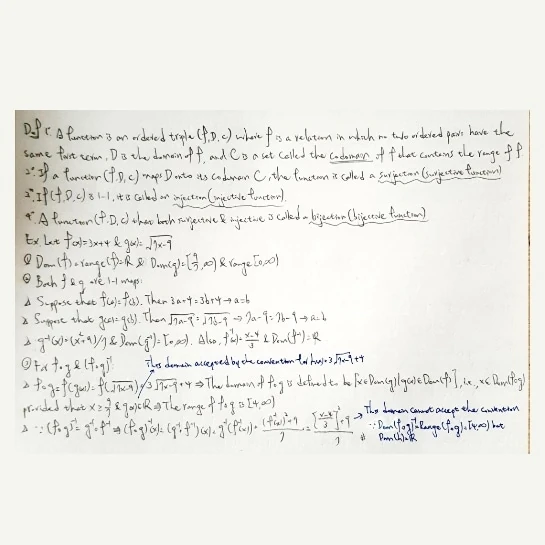 Def 1°. A function is an ordered triple (f, D, C) where f is a relation in which no two ordered pairs have the
same first term, D is the domain of f, and C is a set called the codomain of f that contains the range of f
2° If a function (f, D, C) maps D onto its codomain C, the function is called a surjection (surjective function)
3° If (f, D, C) is 1-1, it is called an injection (injective function).
4° A function (f, D, C) that both surjective & injective is called a bijection (bijective function)
Ex Let f(x)=3x+4 & g(x)=√7x-9
① Dom(f)=range(f)=R & Dom(g)=[9/7,∞) & range [0,∞)
② Both f & g are 1-1 maps:
△ Suppose that f(a)=f(b). Then 3a+4=3b+4 → a=b
△ Suppose that g(a)=g(b). Then √7a-9=√7b-9 → 7a-9=7b-9 → a=b
△ g⁻¹(x)=(x²+9)/7 & Dom(g⁻¹)=[0,∞). Also, f⁻¹(x)=(x-4)/3 & Dom(f⁻¹)=R
③ For f∘g & (f∘g)⁻¹: This domain accepted by the convention for h(x)=3√7x-9+4
△ f∘g=f(g(x))=f(√7x-9)=3√7x-9+4 ⇒ The domain of f∘g is defined to be {x∈Dom(g)|g(x)∈Dom(f)}, i.e., x∈Dom(f∘g)
provided that x≥9/7 & g(x)∈R ⇒ The range of f∘g is [4,∞)
△ ∵ (f∘g)⁻¹=g⁻¹∘f⁻¹ ⇒ (f∘g)⁻¹(x)=(g⁻¹∘f⁻¹)(x)=g⁻¹(f⁻¹(x))=((f⁻¹(x))²+9)/7=([(x-4)/3]²+9)/7 #
→ This domain cannot accept the convention
∵ Dom(f∘g)⁻¹=Range(f∘g)=[4,∞) but
Dom(h)=R